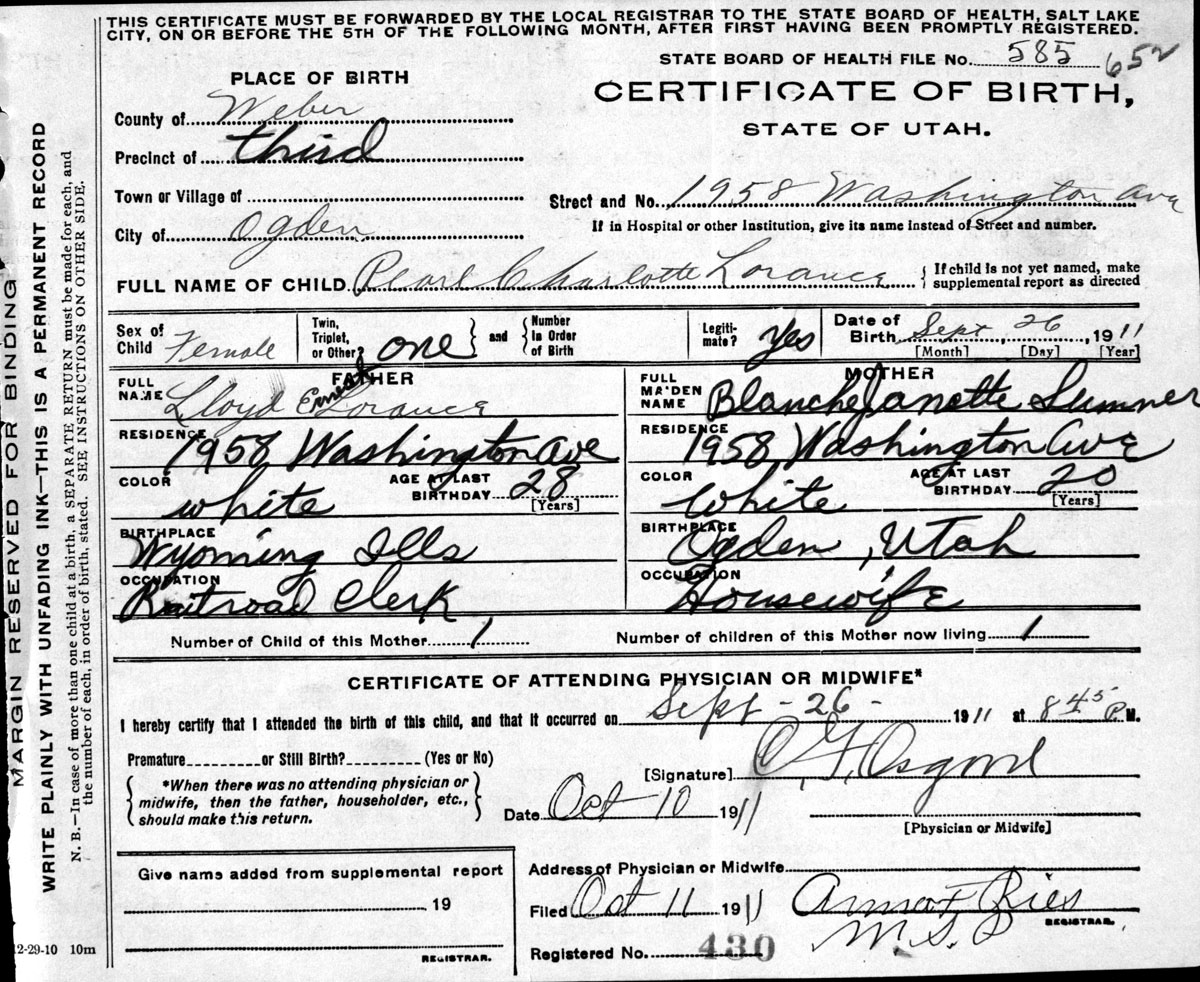 THIS CERTIFICATE MUST BE FORWARDED BY THE LOCAL REGISTRAR TO THE STATE BOARD OF HEALTH, SALT LAKE
CITY, ON OR BEFORE THE 5TH OF THE FOLLOWING MONTH, AFTER FIRST HAVING BEEN PROMPTLY REGISTERED.
STATE BOARD OF HEALTH FILE No. 585 652
CERTIFICATE OF BIRTH,
STATE OF UTAH.
PLACE OF BIRTH
County of Weber
Precinct of third
Town or Village of
City of Ogden
Street and No. 1958 Washington Ave
If in Hospital or other Institution, give its name instead of Street and number.
FULL NAME OF CHILD Pearl Charlotte Lorance
{ If child is not yet named, make
supplemental report as directed
Sex of Child Female
Twin, Triplet, or Other? one } and { Number in Order of Birth
Legiti-mate? Yes
Date of Birth Sept, 26, 1911
[Month] [Day] [Year]
FATHER
FULL NAME Lloyd Ernest Lorance
RESIDENCE 1958 Washington Ave
COLOR white AGE AT LAST BIRTHDAY 28
[Years]
BIRTHPLACE Wyoming Ills
OCCUPATION Railroad Clerk,
MOTHER
FULL MAIDEN NAME Blanche Janette Sumner
RESIDENCE 1958 Washington Ave
COLOR White AGE AT LAST BIRTHDAY 20
[Years]
BIRTHPLACE Ogden, Utah
OCCUPATION Housewife
Number of Child of this Mother 1 Number of children of this Mother now living 1
CERTIFICATE OF ATTENDING PHYSICIAN OR MIDWIFE*
I hereby certify that I attended the birth of this child, and that it occurred on Sept - 26 - 1911 at 8 45 P. M.
Premature or Still Birth? (Yes or No)
{ *When there was no attending physician or
midwife, then the father, householder, etc.,
should make this return. }
[Signature] Osgood
Date Oct 10 1911
[Physician or Midwife]
Give name added from supplemental report
19
REGISTRAR.
Address of Physician or Midwife
Filed Oct 11 1911 Anna F Ries
M.S.D REGISTRAR.
Registered No. 430
MARGIN RESERVED FOR BINDING
WRITE PLAINLY WITH UNFADING INK—THIS IS A PERMANENT RECORD
N. B.—In case of more than one child at a birth, a SEPARATE RETURN must be made for each, and
the number of each, in order of birth, stated. SEE INSTRUCTIONS ON OTHER SIDE.
2-29-10 10m